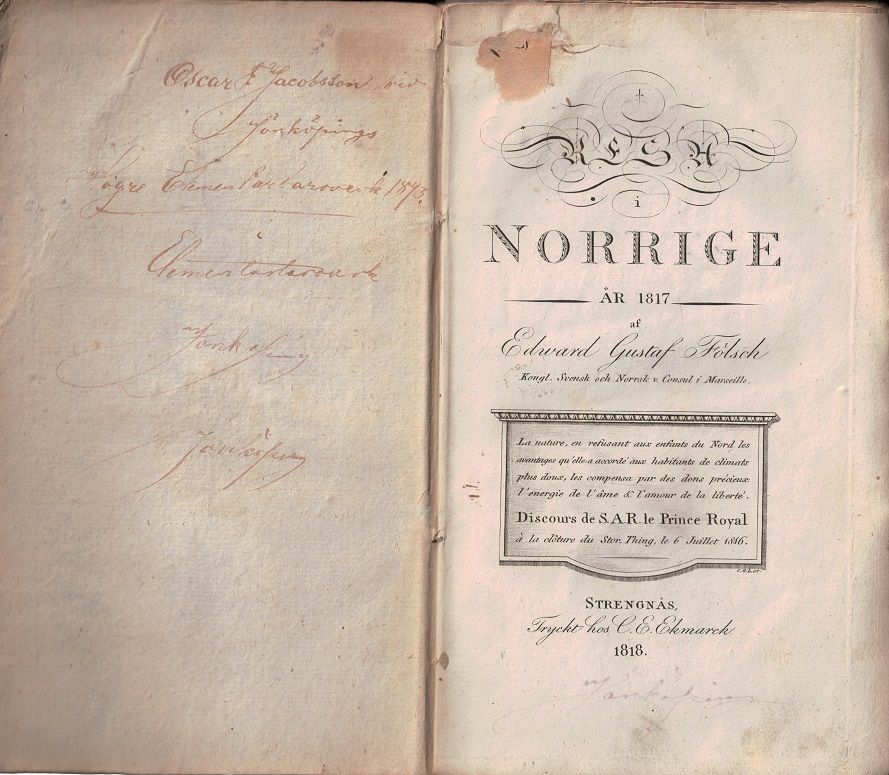 Oscar F Jacobsson vid
Jönköpings
Högre Elementarlaroverk 1873.
Elementarlaroverk
Jönköping
Jönköping
RESA
i
NORRIGE
ÅR 1817
af
Edward Gustaf Fölsch
Kongl. Svensk och Norrsk v. Consul i Marseille.
La nature, en refusant aux enfants du Nord les
avantages qu'elle a accordé aux habitants de climats
plus doux, les compensa par des dons précieux:
l'énergie de l'âme & l'amour de la liberté.
Discours de S.A.R. le Prince Royal
à la clôture du Stor Thing, le 6 Juillet 1816.
STRENGNÄS,
Tryckt hos C. E. Ekmarck
1818.
Jönköping